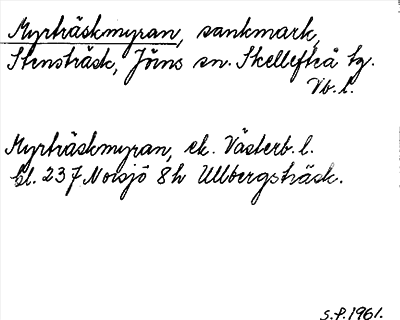 Myrträskmyran, sankmark,
Stensträsk, Jörns sn. Skellefteå tg.
Vb. l.
Myrträskmyran, ek. Västerb. l.
Bl. 237 Norsjö 8h Ullbergsträsk.
S.P. 1961.